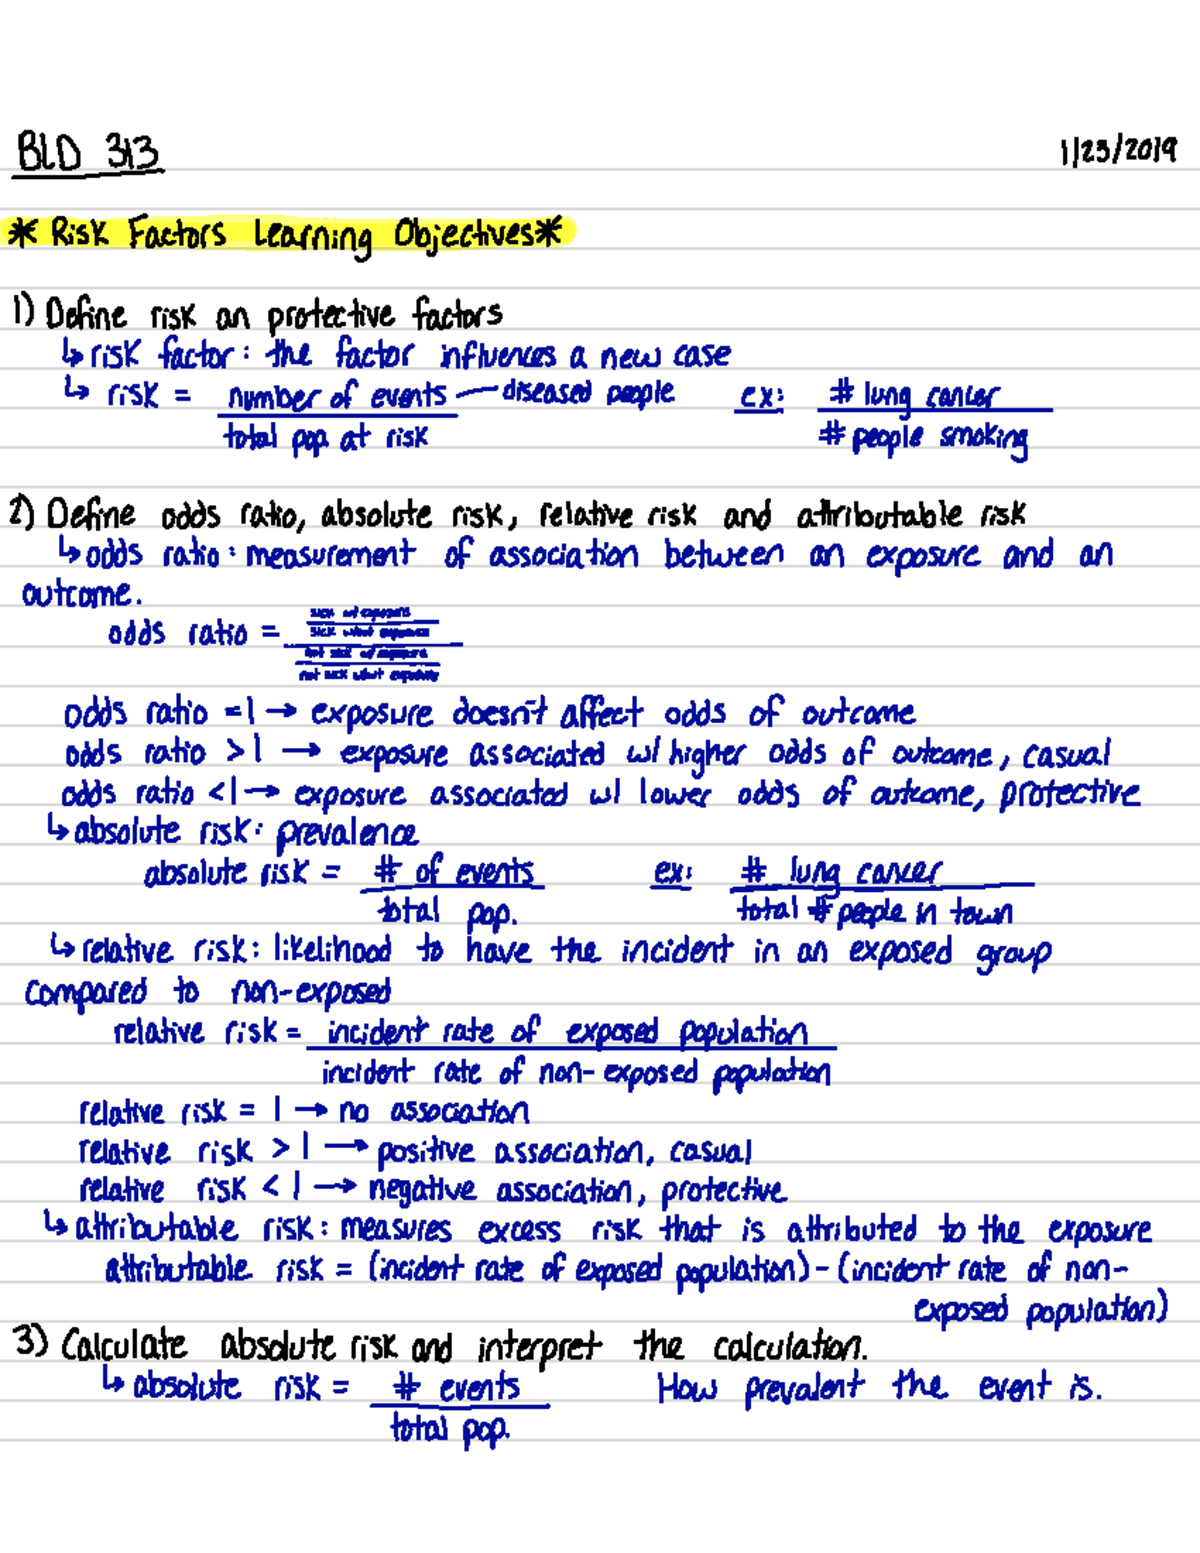 BLD 313 1/23/2019
* Risk Factors Learning Objectives *
1) Define risk an protective factors
↳ risk factor: the factor influences a new case
↳ risk = number of events — diseased people ex: # lung cancer
total pop at risk # people smoking
2) Define odds ratio, absolute risk, relative risk and attributable risk
↳ odds ratio: measurement of association between an exposure and an
outcome.
sick w/ exposure
odds ratio = sick w/out exposure
not sick w/ exposure
not sick w/out exposure
odds ratio = 1 → exposure doesn't affect odds of outcome
odds ratio > 1 → exposure associated w/ higher odds of outcome, casual
odds ratio < 1 → exposure associated w/ lower odds of outcome, protective
↳ absolute risk: prevalence
absolute risk = # of events ex: # lung cancer
total pop. total # people in town
↳ relative risk: likelihood to have the incident in an exposed group
compared to non-exposed
relative risk = incident rate of exposed population
incident rate of non-exposed population
relative risk = 1 → no association
relative risk > 1 → positive association, casual
relative risk < 1 → negative association, protective
↳ attributable risk: measures excess risk that is attributed to the exposure
attributable risk = (incident rate of exposed population) - (incident rate of non-
exposed population)
3) Calculate absolute risk and interpret the calculation.
↳ absolute risk = # events How prevalent the event is.
total pop.